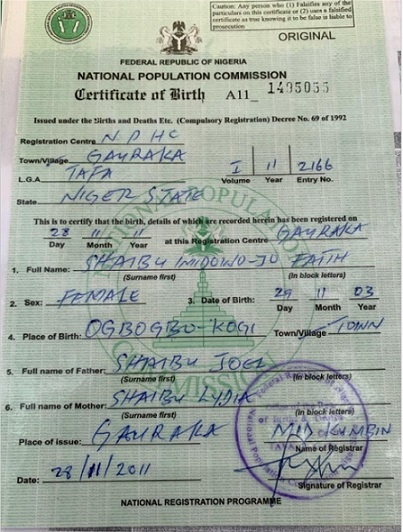 Caution: Any person who (1) Falsifies any of the
particulars on this certificate or (2) uses a falsified
certificate as true knowing it to be false is liable to
prosecution
ORIGINAL
FEDERAL REPUBLIC OF NIGERIA
NATIONAL POPULATION COMMISSION
Certificate of Birth A11_ 1495055
Issued under the Births and Deaths Etc. (Compulsory Registration) Decree No. 69 of 1992
Registration Centre NPHC
Town/Village GAURAKA
L.G.A. TAFA I 11 2166
Volume Year Entry No.
State NIGER STATE
This is to certify that the birth, details of which are recorded herein has been registered on
28 11 11 at this Registration Centre GAURAKA
Day Month Year
1. Full Name: SHAIBU FAITH
(Surname first) (In block letters)
2. Sex: FEMALE 3. Date of Birth: 29 11 03
Day Month Year
4. Place of Birth: OGBOGBO-KOGI Town/Village TOWN
5. Full name of Father: SHAIBU JOEL
(Surname first) (In block letters)
6. Full name of Mother: SHAIBU LYDIA
(Surname first) (In block letters)
Place of issue: GAURAKA
Name of Registrar
Date: 28/11/2011
Signature of Registrar
NATIONAL REGISTRATION PROGRAMME